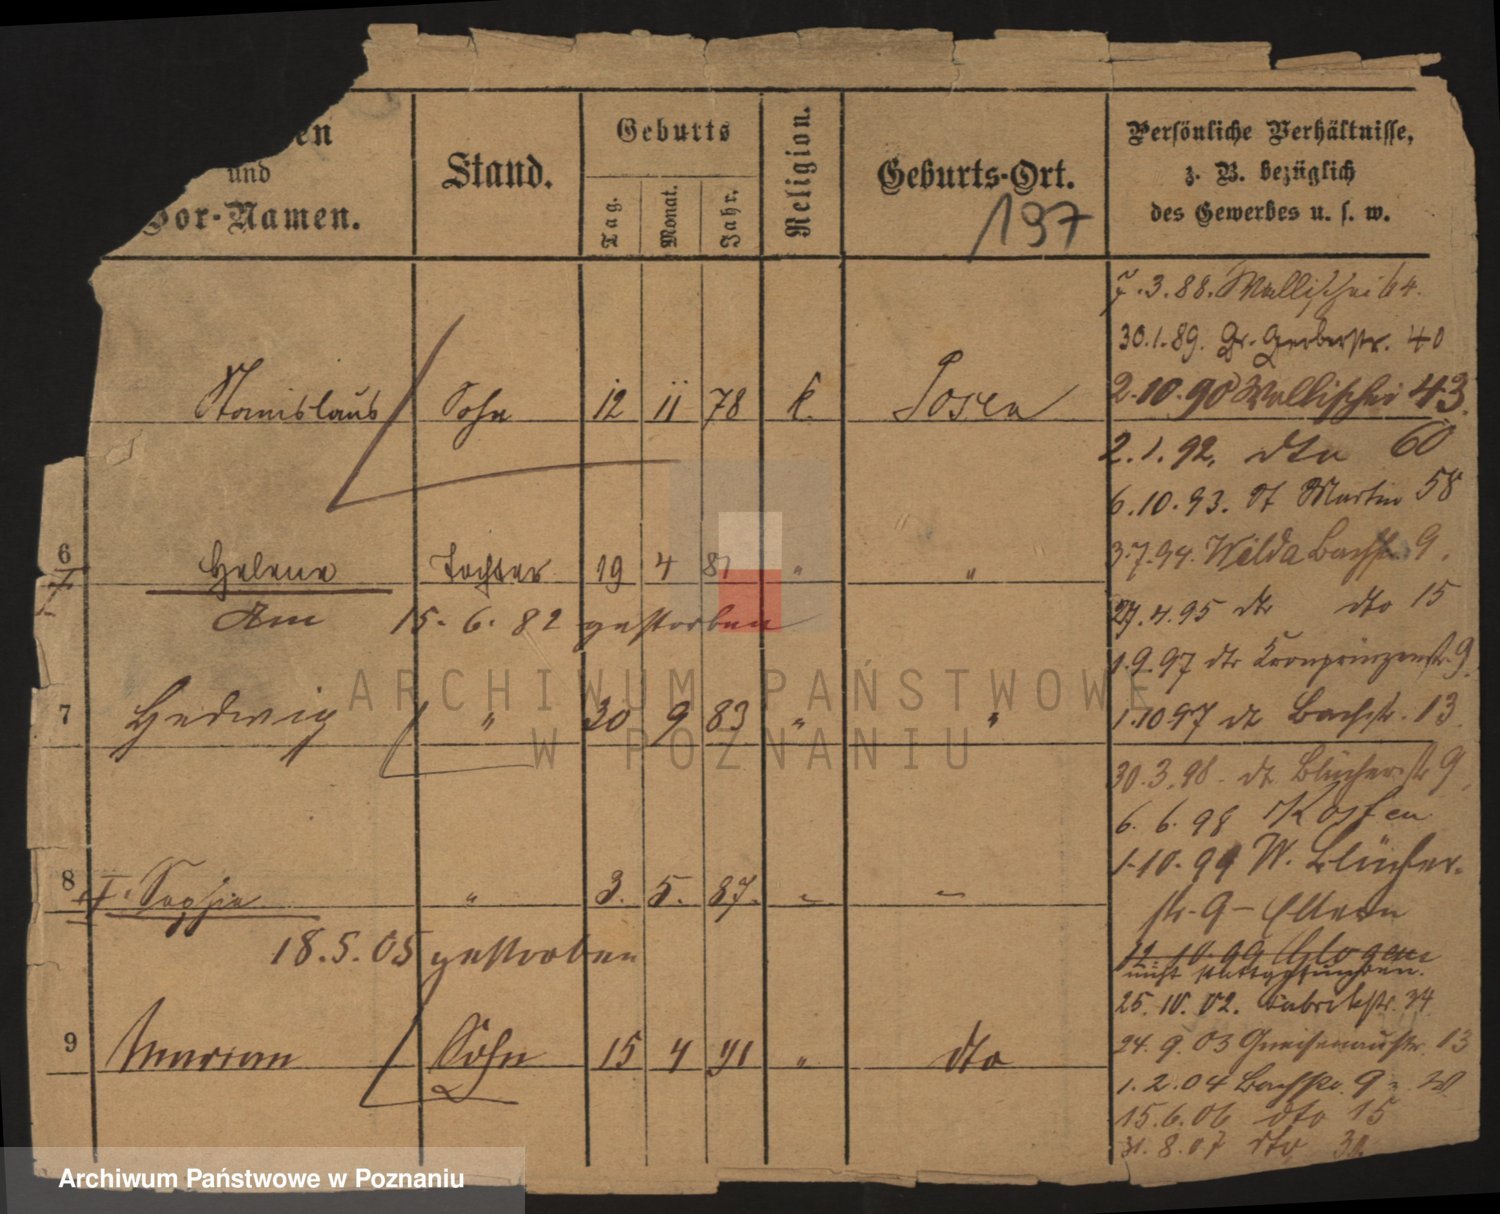 und
Vor-Namen.
Stand.
Geburts
Tag.
Monat.
Jahr.
Religion.
Geburts-Ort.
197
Persönliche Verhältnisse,
z. B. bezüglich
des Gewerbes u. s. w.
7.3.88. Wallischei 64.
30.1.89. Gr. Gerberstr. 40
2.10.90 Wallischei 43.
Stanislaus Sohn 12 11 78 k. Posen
2.1.92. dto 60
6.10.93. St Martin 58
3.7.94. Wilda Bachstr. 9.
6 Helene Tochter 19 4 81 " "
Am 15.6.82 gestorben
27.4.95 dto 15
1.9.97 Kronprinzenstr. 9.
7 Hedwig " 30 9 83 " "
1.10 97 Bachstr. 13.
30.3.98. Blücherstr 9.
6.6.98 Kosten
1.10.99 W. Blücher-
str. 9 - Eltern
8 Sophie " 3. 5. 87.
18.5.05 gestorben
11.10.99 Glogau
nicht stattgefunden.
25.10.02. Fabrikstr. 34
24.9.03 Gneisenaustr. 13
9 Marian Sohn 15 4 91 " dto
1.2.04 Bachstr. 9
15.6.06 dto 15
31.8.07 dto
ARCHIWUM PAŃSTWOWE
W POZNANIU
Archiwum Państwowe w Poznaniu